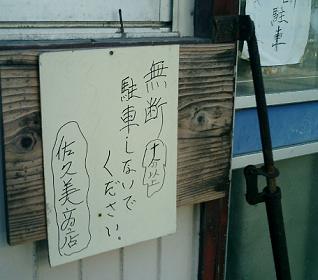 無断
十分以上
駐車しないで
ください。
佐久美商店
駐車